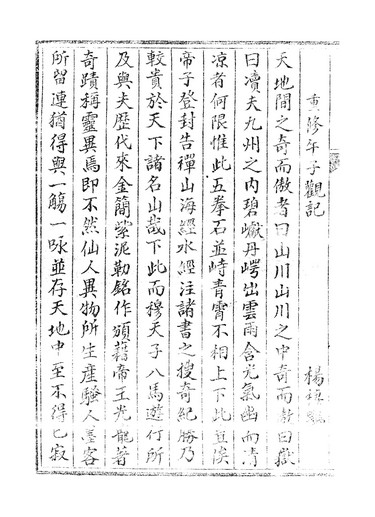 重修年子觀記
楊
天地間之奇而傲者曰山川山川之中奇而尊曰嶽
曰瀆夫九州之内碧巘丹崿出雲雨含光氣幽而清
凉者何限惟此五拳石並峙青霄不相上下此豈俟
帝子登封告禪山海經水經注諸書之搜奇紀勝乃
較貴於天下諸名山哉下此而穆天子八馬遊行所
及與夫歷代來金簡紫泥勒銘作頌藉帝王光寵著
奇蹟稱靈異焉即不然仙人異物所生産騷人墨客
所留連猶得與一觴一咏並存天地中至不得已寂